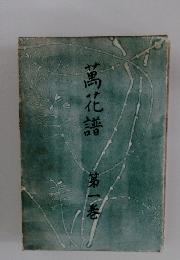 萬花譜
第一巻